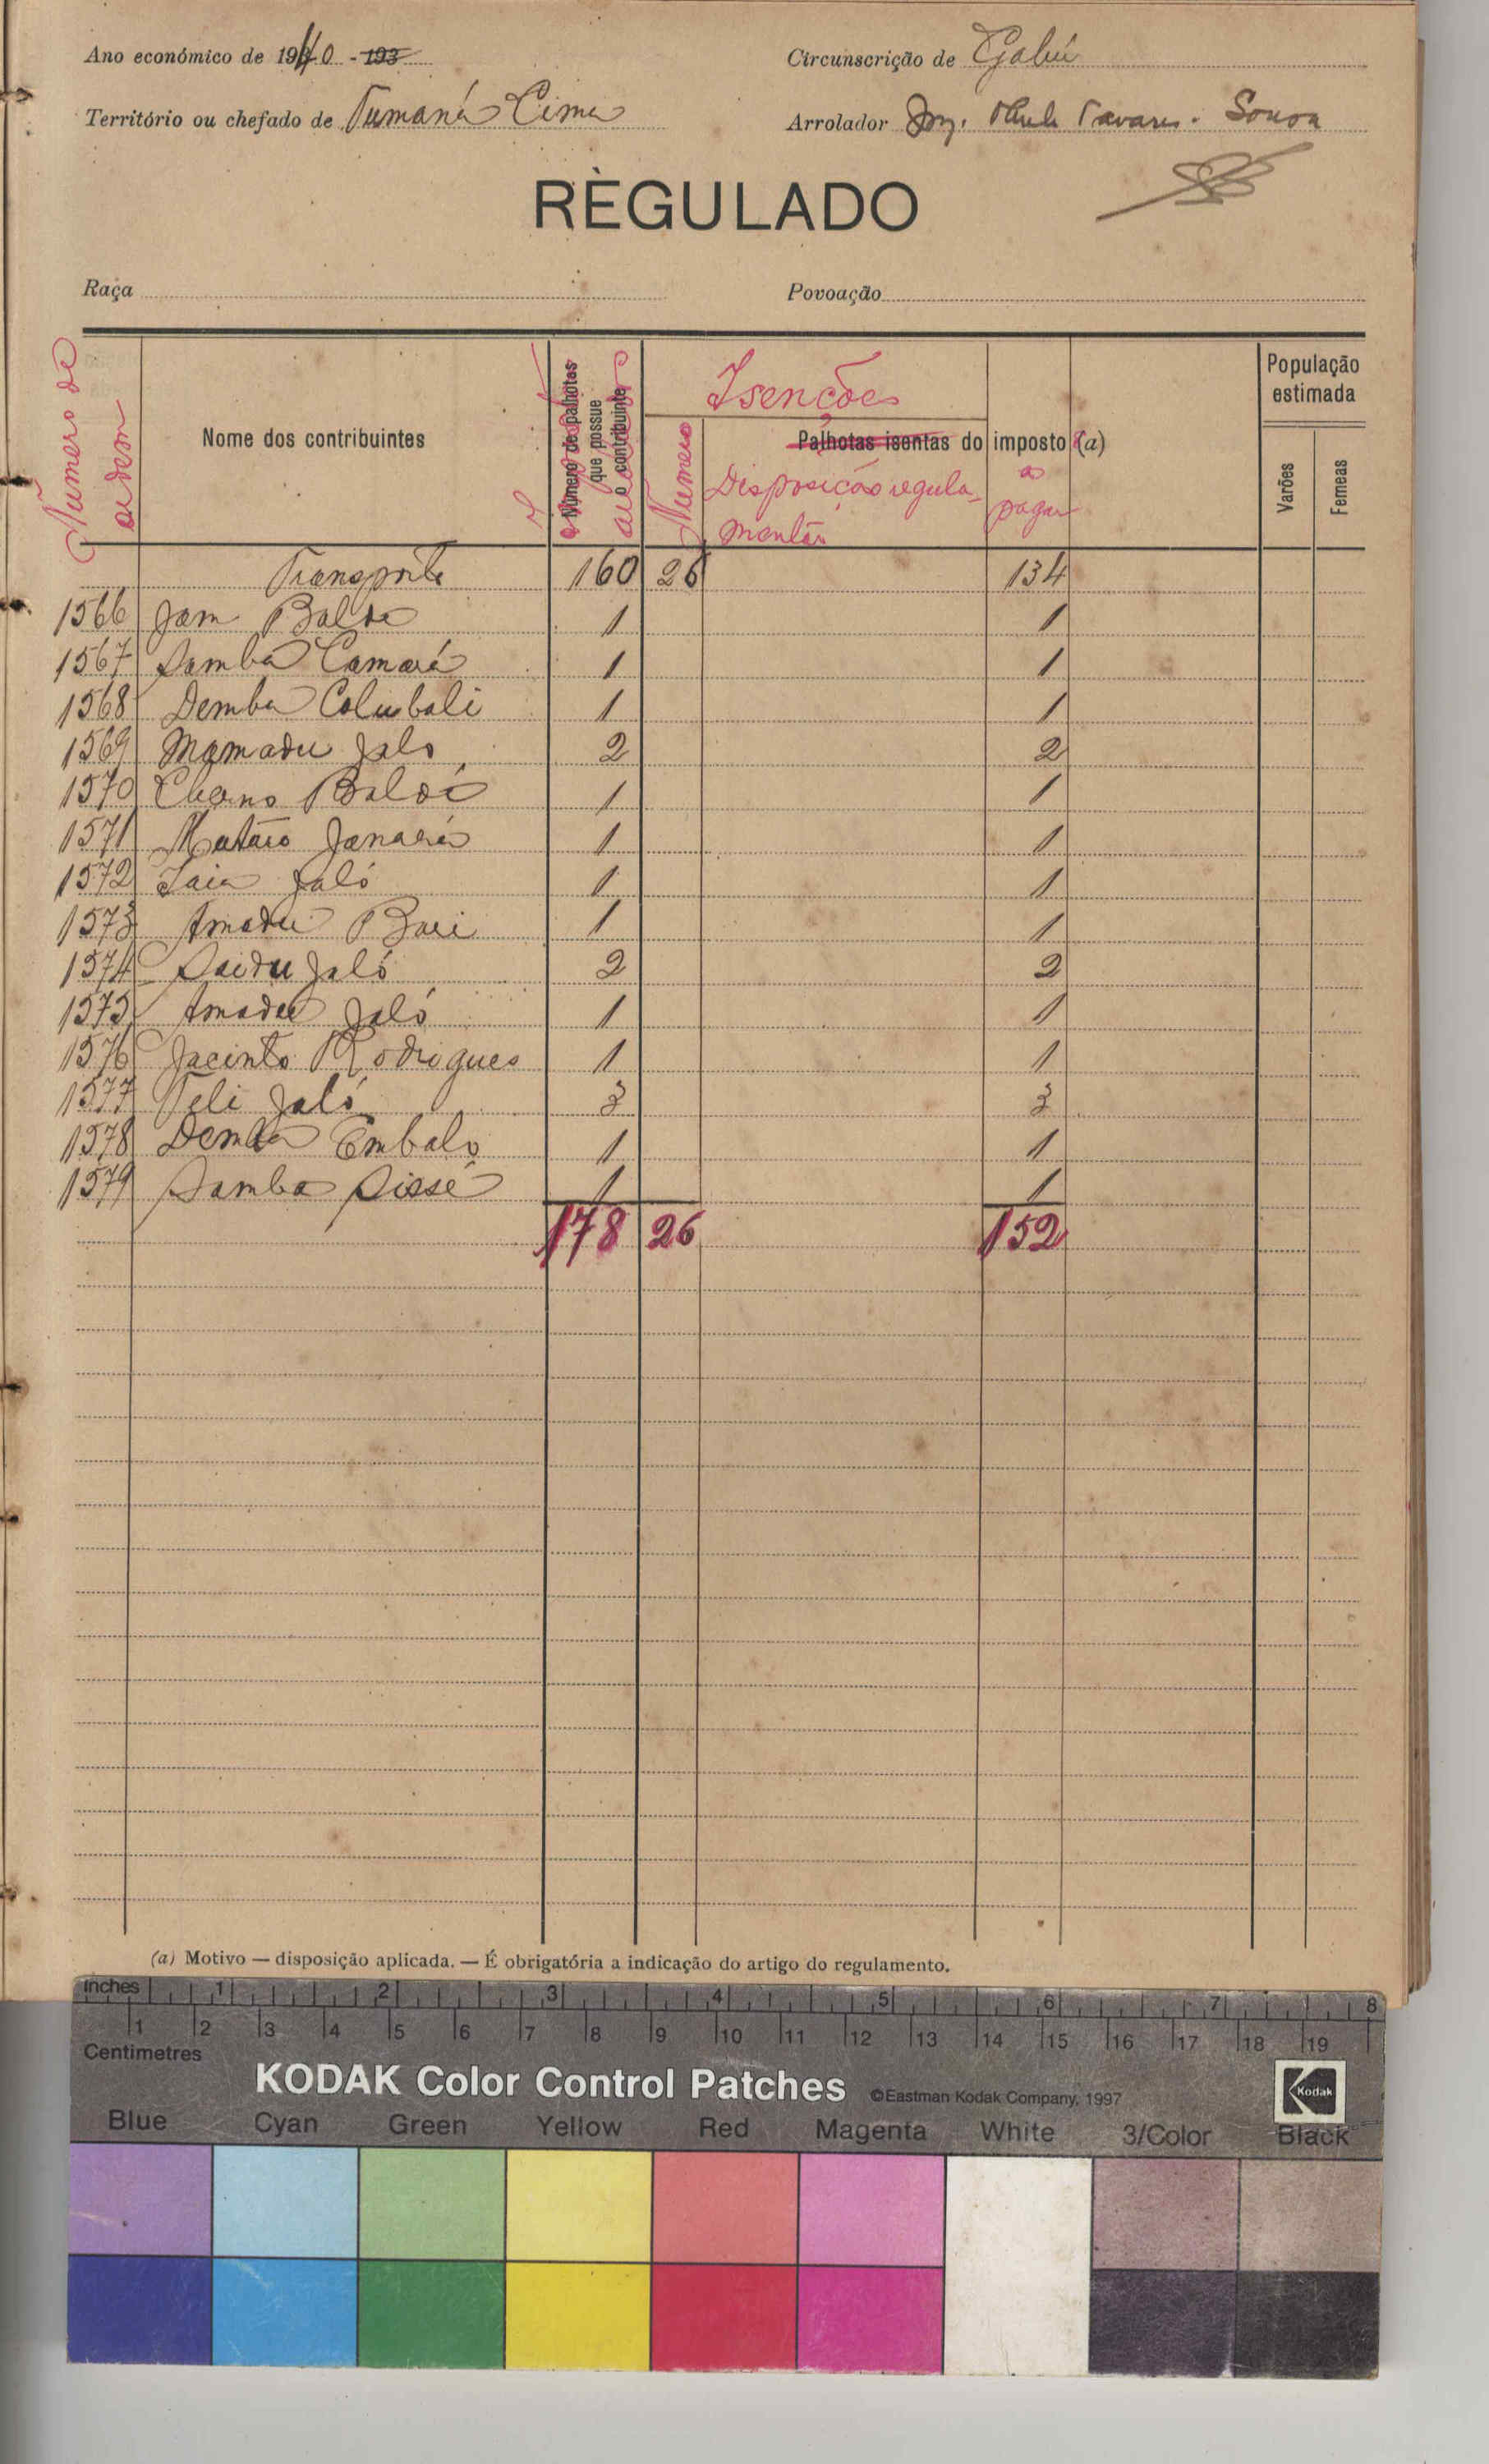 Ano económico de 1940 - 193
Circunscrição de Gabú
Território ou chefado de Tumaná Cima
Arrolador Tavares Sousa
RÈGULADO
Raça
Povoação
Numero de ordem
Nome dos contribuintes
Número de palhotas que possue o contribuinte
Isenções
Palhotas isentas do imposto (a)
Numero
Disposição regulamentar
a pagar
População estimada
Varões
Femeas
Transporte 160 26 134
1566 Jam Balde 1 1
1567 Samba Camará 1 1
1568 Demba Colubali 1 1
1569 Mamadu Jalo 2 2
1570 Cherno Baldé 1 1
1571 Mutaro 1 1
1572 Jaló 1 1
1573 Amadu Bari 1 1
1574 Saidu Jaló 2 2
1575 Amadu Jaló 1 1
1576 Jacinto Rodrigues 1 1
1577 Jaló 3 3
1578 Demba Embalo 1 1
1579 Samba Sissé 1 1
178 26 152
(a) Motivo — disposição aplicada. — É obrigatória a indicação do artigo do regulamento.
Inches 1 2 3 4 5 6 7 8
1 2 3 4 5 6 7 8 9 10 11 12 13 14 15 16 17 18 19
Centimetres
KODAK Color Control Patches ©Eastman Kodak Company, 1997 Kodak
Blue Cyan Green Yellow Red Magenta White 3/Color Black